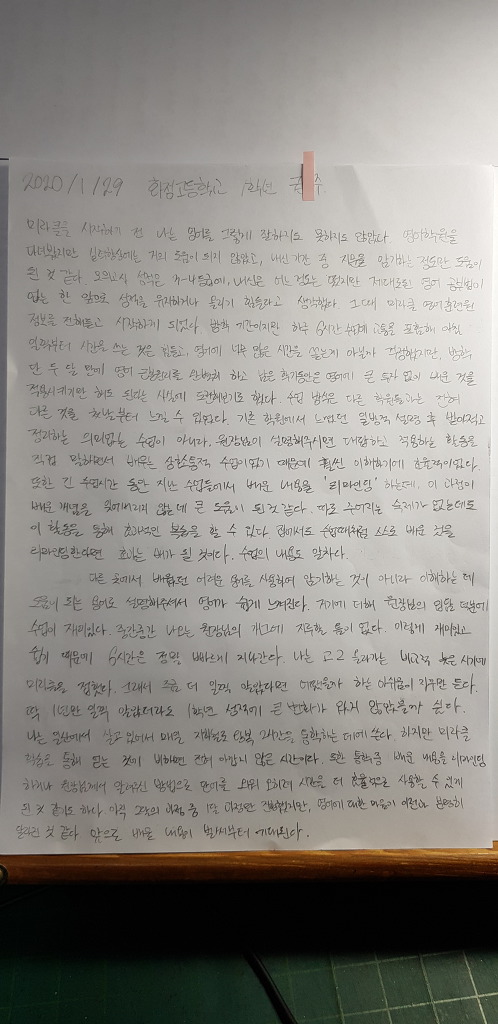 2020/1/29 화정고등학교 1학년 권 주
미라클을 시작하기 전 나는 영어를 그렇게 잘하지도 못하지도 않았다. 영어학원을
다녀봤지만 실력향상에는 거의 도움이 되지 않았고, 내신기간 중 지문을 암기하는 정도만 도움이
된 것 같다. 모의고사 성적은 3~4등급에, 내신은 어느 정도는 제대로된 영어 공부법이
없는 한 앞으로 성적을 유지하거나 올리기 힘들다고 생각했다. 그러다 미라클 영어훈련원
정보를 전해듣고 시작하게 되었다. 방학 기간이지만 하루 6시간 수업에 교통을 포함해 아침
일찍부터 시간을 쓰는 것은 힘들고, 영어에 너무 많은 시간을 쏟는게 아닐까 걱정했지만, 방학
단 두 달 만에 영어 를 완벽히 하고 남은 학기동안은 영어에 큰 투자 없이 배운 것을
적용시키기만 해도 된다는 사실에 도전해보기로 했다. 수업 방식은 다른 학원들과는 전혀
다른 것을 첫날부터 느낄 수 있었다. 기존 학원에서 느꼈던 일방적 설명 후 받아적고
정리하는 의미없는 수업이 아니라, 원장님이 설명해주시면 대답하고 적용하는 활동을
직접 말하면서 배우는 상호소통적 수업이었기 때문에 훨씬 이해하기에 효율적이었다.
또한 긴 수업시간 동안 지난 수업들에서 배운 내용을 '리마인딩' 하는데, 이 과정이
배운 개념을 잊어버리지 않는데 큰 도움이 된 것 같다. 따로 주어지는 숙제가 없는데도
이 활동을 통해 효과적인 복습을 할 수 있다. 집에서도 수업때처럼 스스로 배운 것을
리마인딩한다면 효과는 배가 될 것이다. 수업의 내용도 알차다.
다른 곳에서 배웠던 어려운 용어를 사용하여 암기하는 것이 아니라 이해하는 데
도움이 되는 용어로 설명해주셔서 영어가 쉽게 느껴진다. 거기에 더해 원장님의 입담 덕분에
수업이 재미있다. 중간중간 나오는 원장님의 개그에 지루할 틈이 없다. 이렇게 재미있고
쉽기 때문에 6시간은 정말 빠르게 지나간다. 나는 고2 올라가는 비교적 늦은 시기에
미라클을 접했다. 그래서 조금 더 일찍 알았다면 어땠을까 하는 아쉬움이 자꾸만 든다.
딱 1년만 일찍 알았더라도 1학년 성적에 큰 변화가 있지 않았을까 싶다.
나는 일산에서 살고 있어서 매일 지하철로 왕복 2시간을 통학하는 데에 쓴다. 하지만 미라클
학습을 통해 얻는 것에 비하면 전혀 아깝지 않은 시간이다. 또한 통학중 배운 내용을 리마인딩
하거나 원장님께서 알려주신 방법으로 단어를 외워 오히려 시간을 더 효율적으로 사용할 수 있게
된 것 같기도 하다. 아직 과정 중 1달 과정만 진행했지만, 영어에 대한 마음이 이전과 분명히
달라진 것 같다. 앞으로 배울 내용이 벌써부터 기대된다.